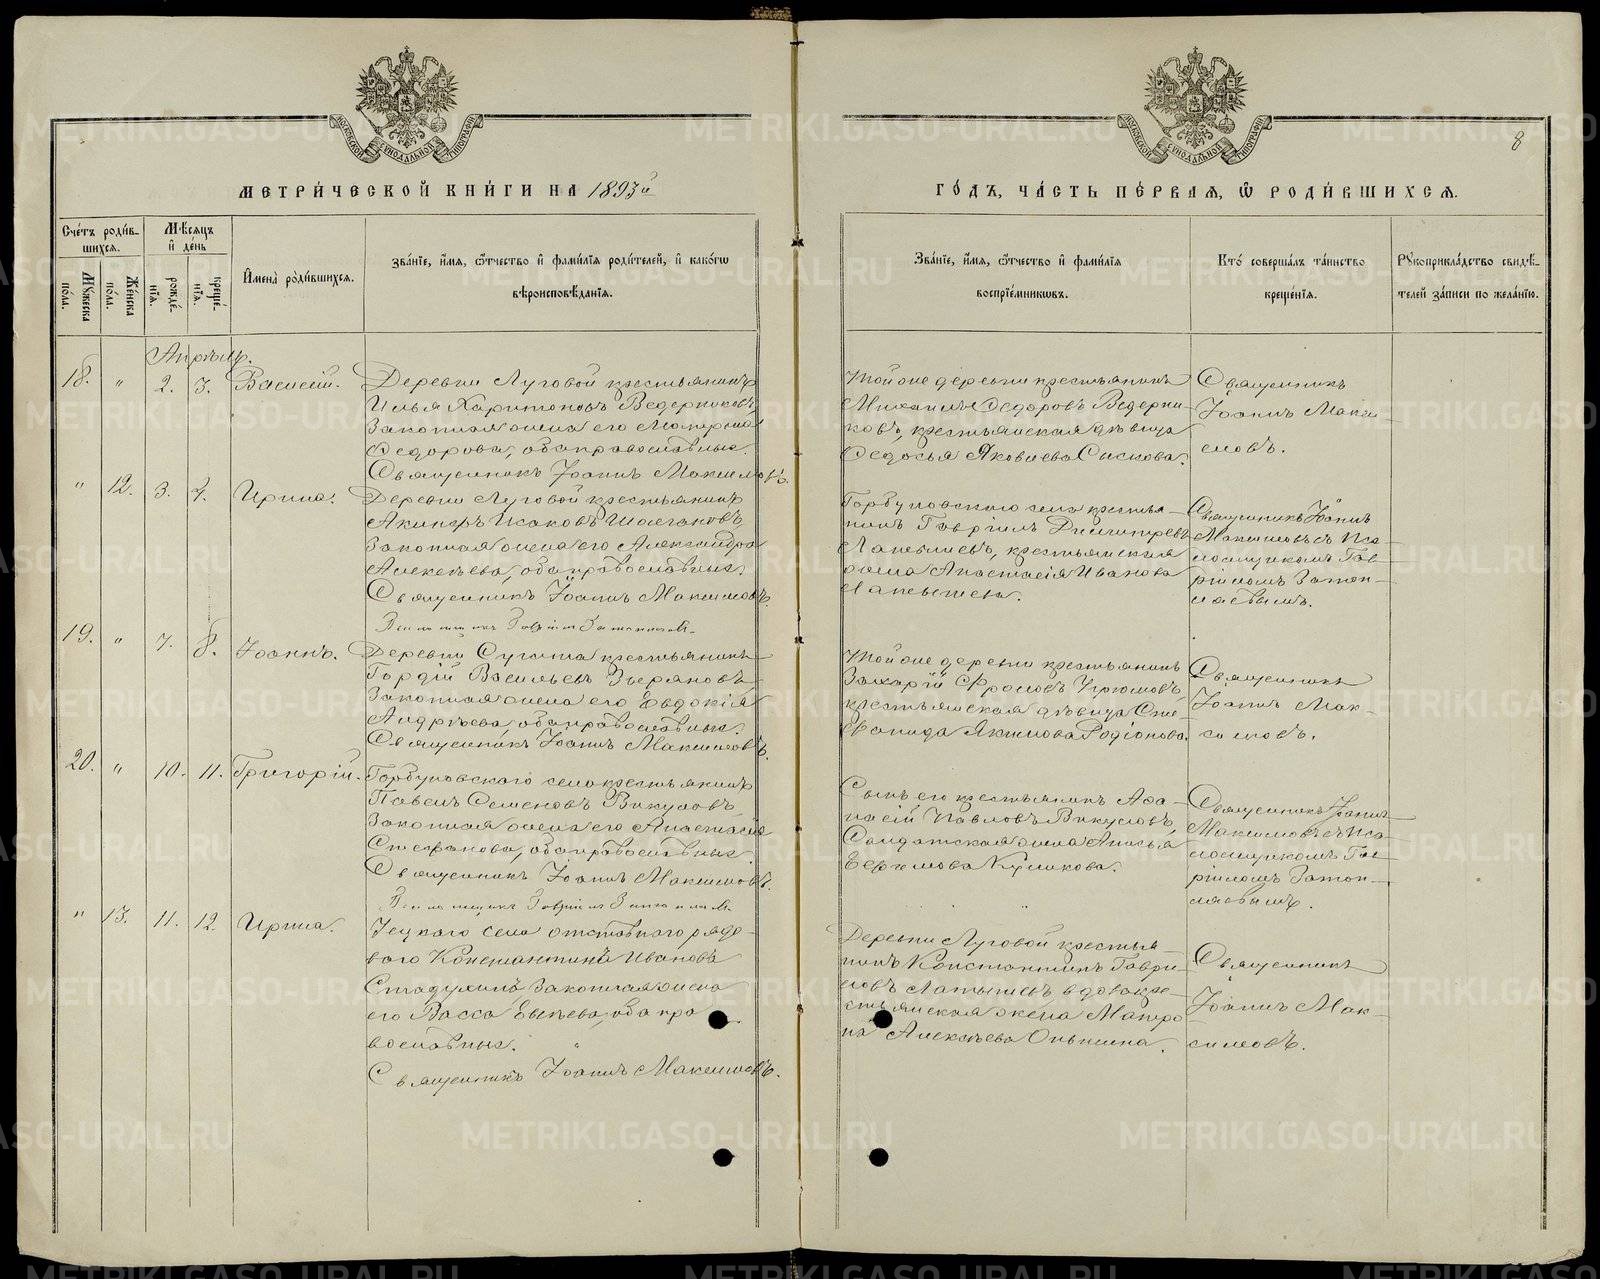 МОСКОВСКОЙ СѴНОДАЛЬНОЙ ТИПОГРАФІИ
МОСКОВСКОЙ СѴНОДАЛЬНОЙ ТИПОГРАФІИ
8
МЕТРИ́ЧЕСКОЙ КНИ́ГИ НА 1893й
ГО́ДЪ, ЧА́СТЬ ПЕ́РВАЯ, Ѡ РОДИ́ВШИХСЯ.
Сче́тъ роди́вшихся.
Му́жеска по́ла.
Же́нска по́ла.
Мѣ́сяцъ и де́нь
рожде́нїя.
креще́нїя.
Имена̀ роди́вшихся.
Зва́нїе, и́мя, ѻ́тчество и фами́лїя роди́телей, и како́гѡ
вѣроисповѣ́данїя.
Зва́нїе, и́мя, ѻ́тчество и фами́лїя
воспрїе́мникѡвъ.
Кто̀ соверша́лъ та́инство
креще́нїя.
Рꙋкоприкла́дство свидѣ́-
телей за́писи по жела́нїю.
Апрѣль.
18. " 2. 3. Василій.
Деревни Луговой крестьянинъ
Илья Харитоновъ Ведерниковъ
Законная жена его Матрена
Ѳедорова, оба православные.
Священникъ Іоаннъ Максимовъ.
Той же деревни крестьянинъ
Михаилъ Ѳедоровъ Ведерни-
ковъ, крестьянская дѣвица
Ѳедосья Яковлева Сыскова.
Священникъ
Іоаннъ Макси
мовъ.
" 12. 3. 4. Ирина.
Деревни Луговой крестьянинъ
Исаковъ
Законная жена его Александра
Алексѣева, оба православные.
Священникъ Іоаннъ Максимовъ.
Псаломщикъ Гавріилъ
Горбуновскаго села крестья-
нинъ Гавріилъ Дмитріевъ
Латышевъ, крестьянская
жена Анастасія Иванова
Латышева.
Священникъ Іоаннъ
Максимовъ съ Пса
ломщикомъ Гав-
ріиломъ
19. " 7. 8. Іоаннъ.
Деревни крестьянинъ
Гордій Васильевъ Зыряновъ
Законная жена его Евдокія
Андреева, оба православные.
Священникъ Іоаннъ Максимовъ.
Той же деревни крестьянинъ
Захарій Фроловъ
крестьянская дѣвица Сте-
фанида Якимова Родіонова.
Священникъ
Іоаннъ Мак-
симовъ.
20. " 10. 11. Григорій.
Горбуновскаго села крестьянинъ
Павелъ Семеновъ Викуловъ
Законная жена его Анастасія
Стефанова, оба православные.
Священникъ Іоаннъ Максимовъ.
Псаломщикъ Гавріилъ
Сынъ его крестьянинъ Афа-
насій Павловъ Викуловъ,
Солдатская жена Анисья
Куликова.
Священникъ Іоаннъ
Максимовъ съ Пса
ломщикомъ Гав-
ріиломъ
" 13. 11. 12. Ирина.
села отставного рядо-
вого Константина Иванова
Стадухина Законная жена
его Васса оба пра
вославные.
Священникъ Іоаннъ Максимовъ.
Деревни Луговой крестья-
нинъ Константинъ Гаври-
ловъ Латышевъ вдова кре-
стьянская жена Матро
на Алексѣева
Священникъ
Іоаннъ Мак-
симовъ.
METRIKI.GASO-URAL.RU